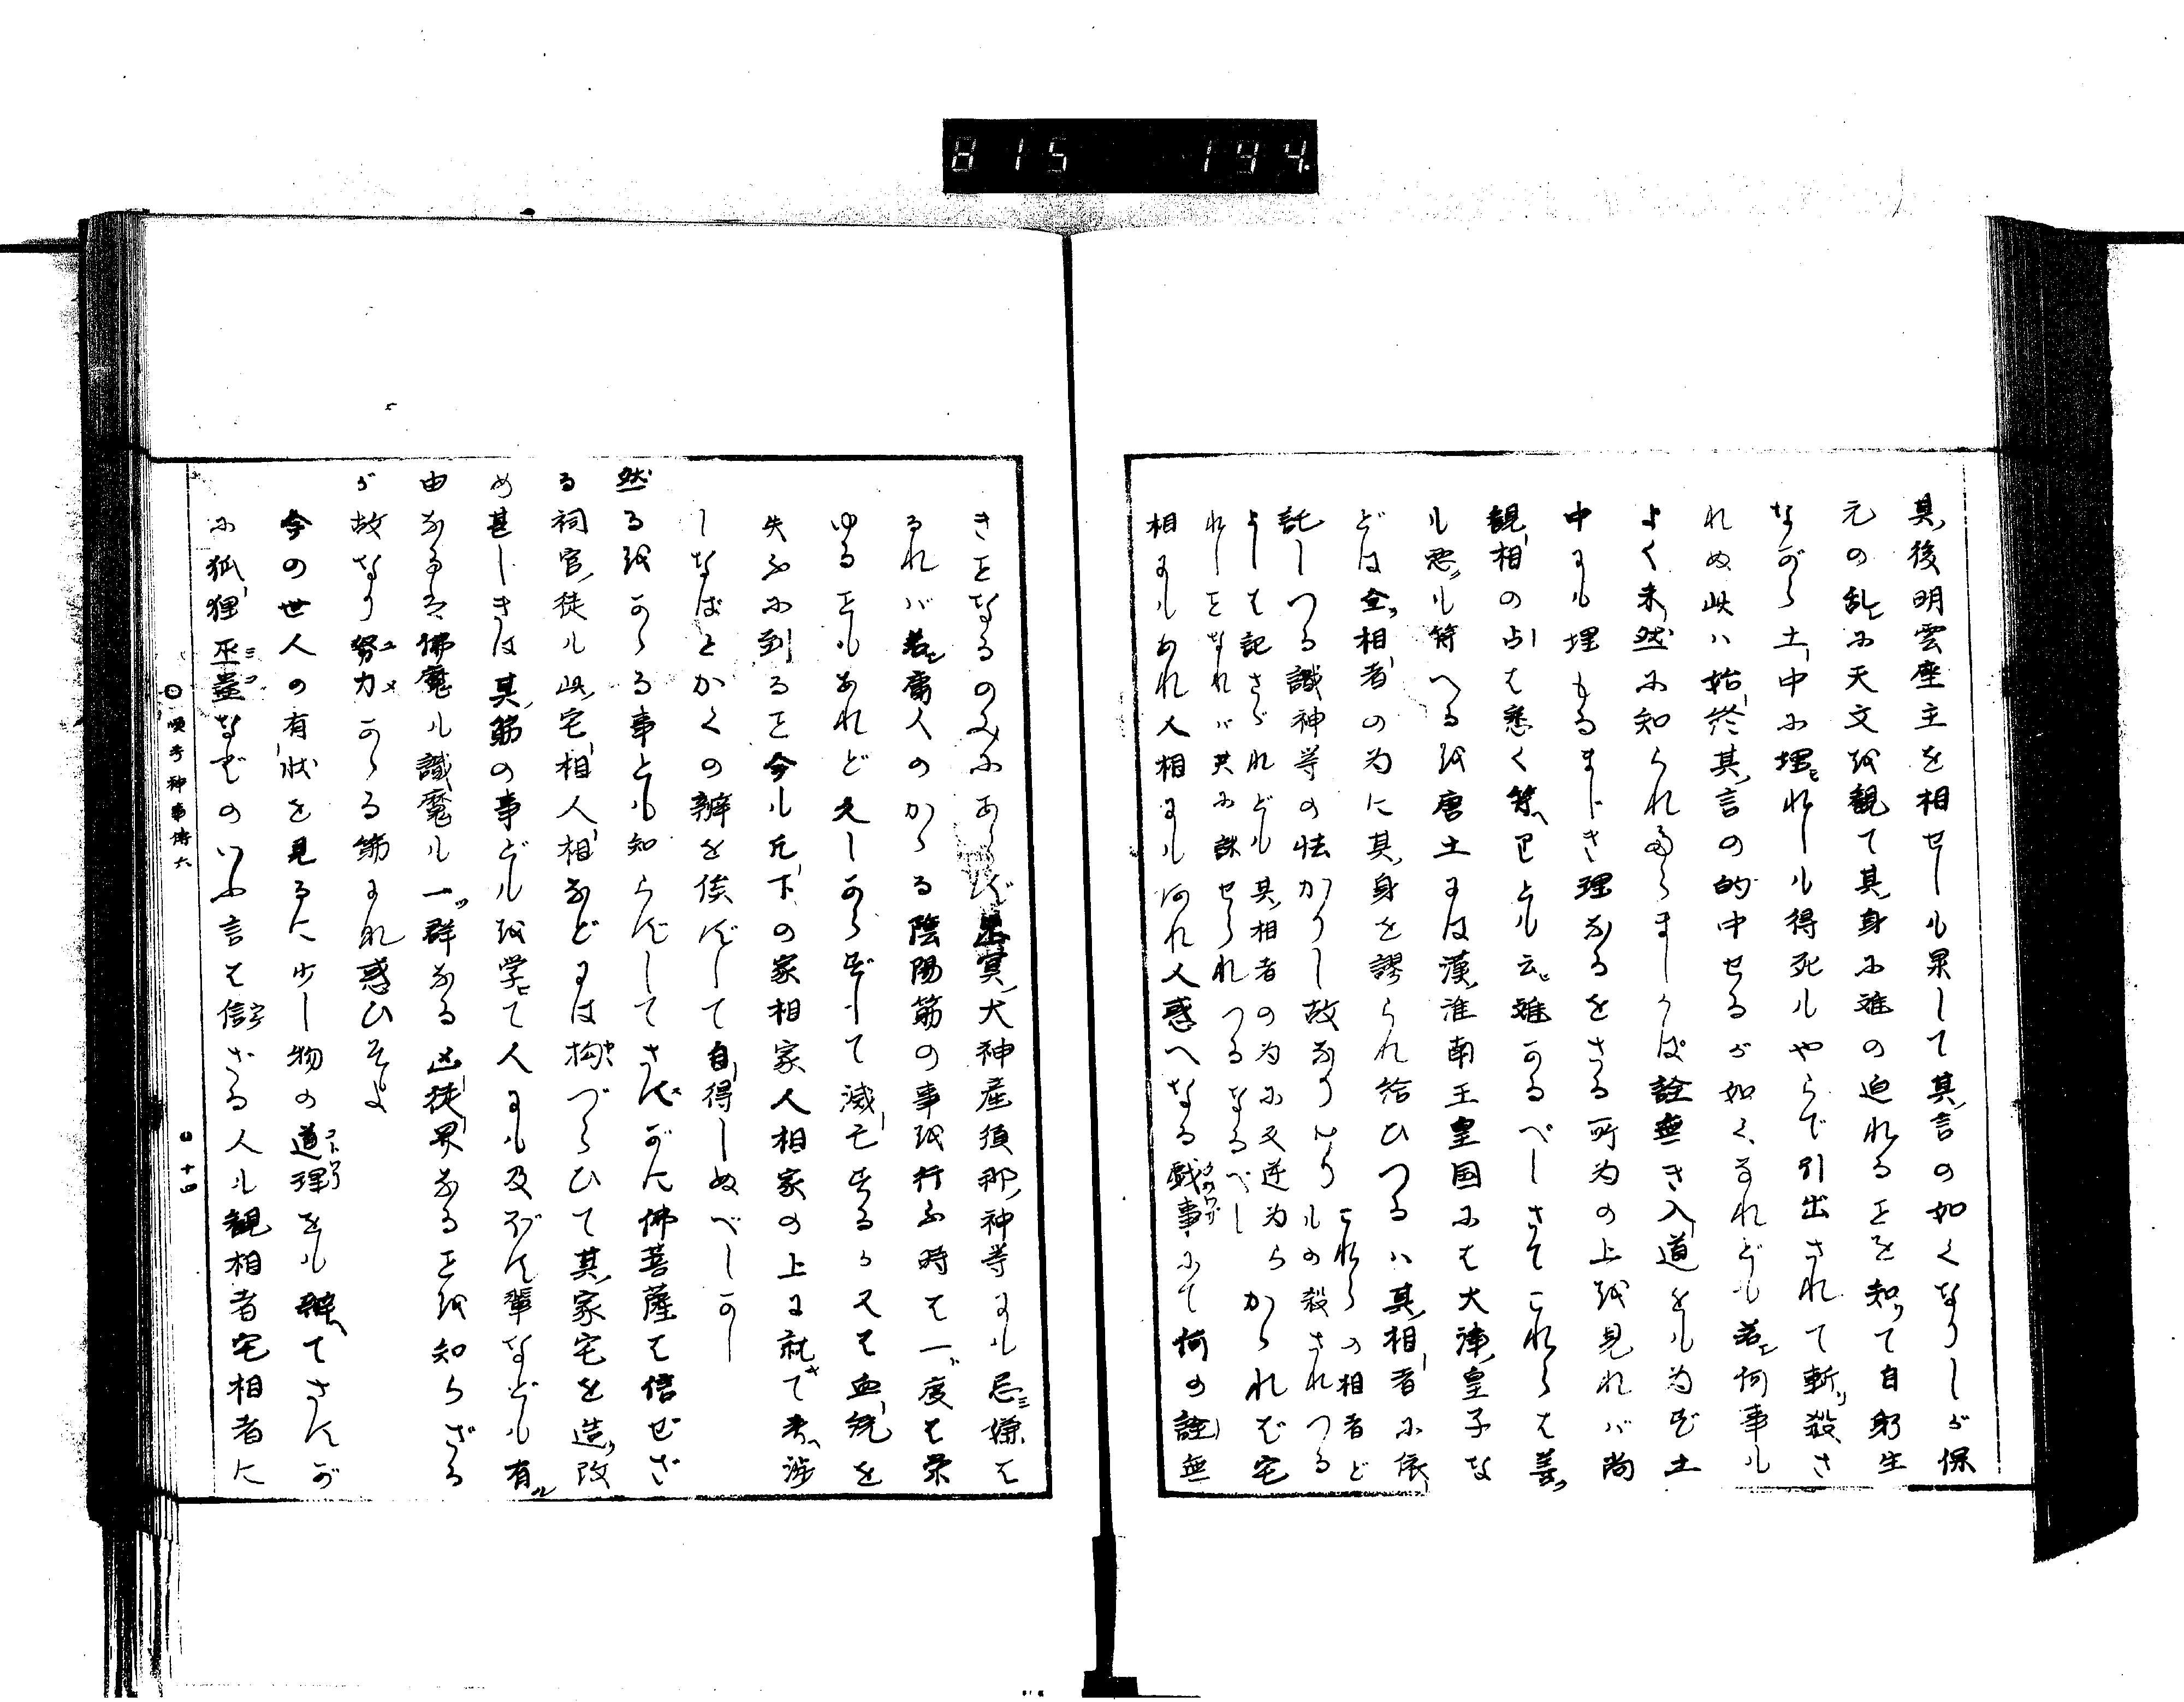 815 194.
其後明雲座主を相せしも果して其言の如くなりしが保
元の乱に天文を観て其身に難の迫れることを知て自躬生
ながら土中に埋れしも得死もやらで引出されて斬殺さ
れぬ此は始終其言の的中せるが如くなれども若何事も
よく未然に知られたらましかば詮無き入道をも為ず土
中にも埋もるまじき理なるをさる所為の上を見れば尚
観相の占は悉く符へりとも云難かるべしさてこれらは善
も悪も符へるを唐土には漢淮南王皇国には大津皇子な
どは全相者の為に其身を謬られ給ひつるは其相者に依
託しつる識神等の怯かりし故なりけり
これらの相者ども殺されつる
よしは記さゞれども其相者の為に又逆為らかられば宅
れしことなれば共に誅せられつるなるべし
相にもあれ人相にも何れ人惑へなる戯事にて何の詮無
きことなるのみにあらず 大神産須那神等にも忌嫌は
るれば若庸人のかゝる陰陽筋の事を行ふ時は一度は栄
ゆることもあれど久しからずして滅亡するか又は血統を
失ふに到ること今も凡下の家相家人相家の上に就て考渉
しなばとかくの辨を俟ずして自得しぬべしかし
然るをかゝる事とも知らずしてさすがに佛菩薩は信ぜざ
る祠官徒も此宅相人相などには拘づらひて其家宅を造改
め甚しきは其筋の事どもを学て人にも及ぼす輩なども有
由なるは佛魔も識魔も一群なる凶徒界なることを知らざる
が故なり努力かゝる筋にな惑ひそよ
今の世人の有状を見るに少し物の道理をも辨てさすが
に狐狸巫蠱などのいふ言は信ざる人も観相者宅相者に
神事傳六
十四